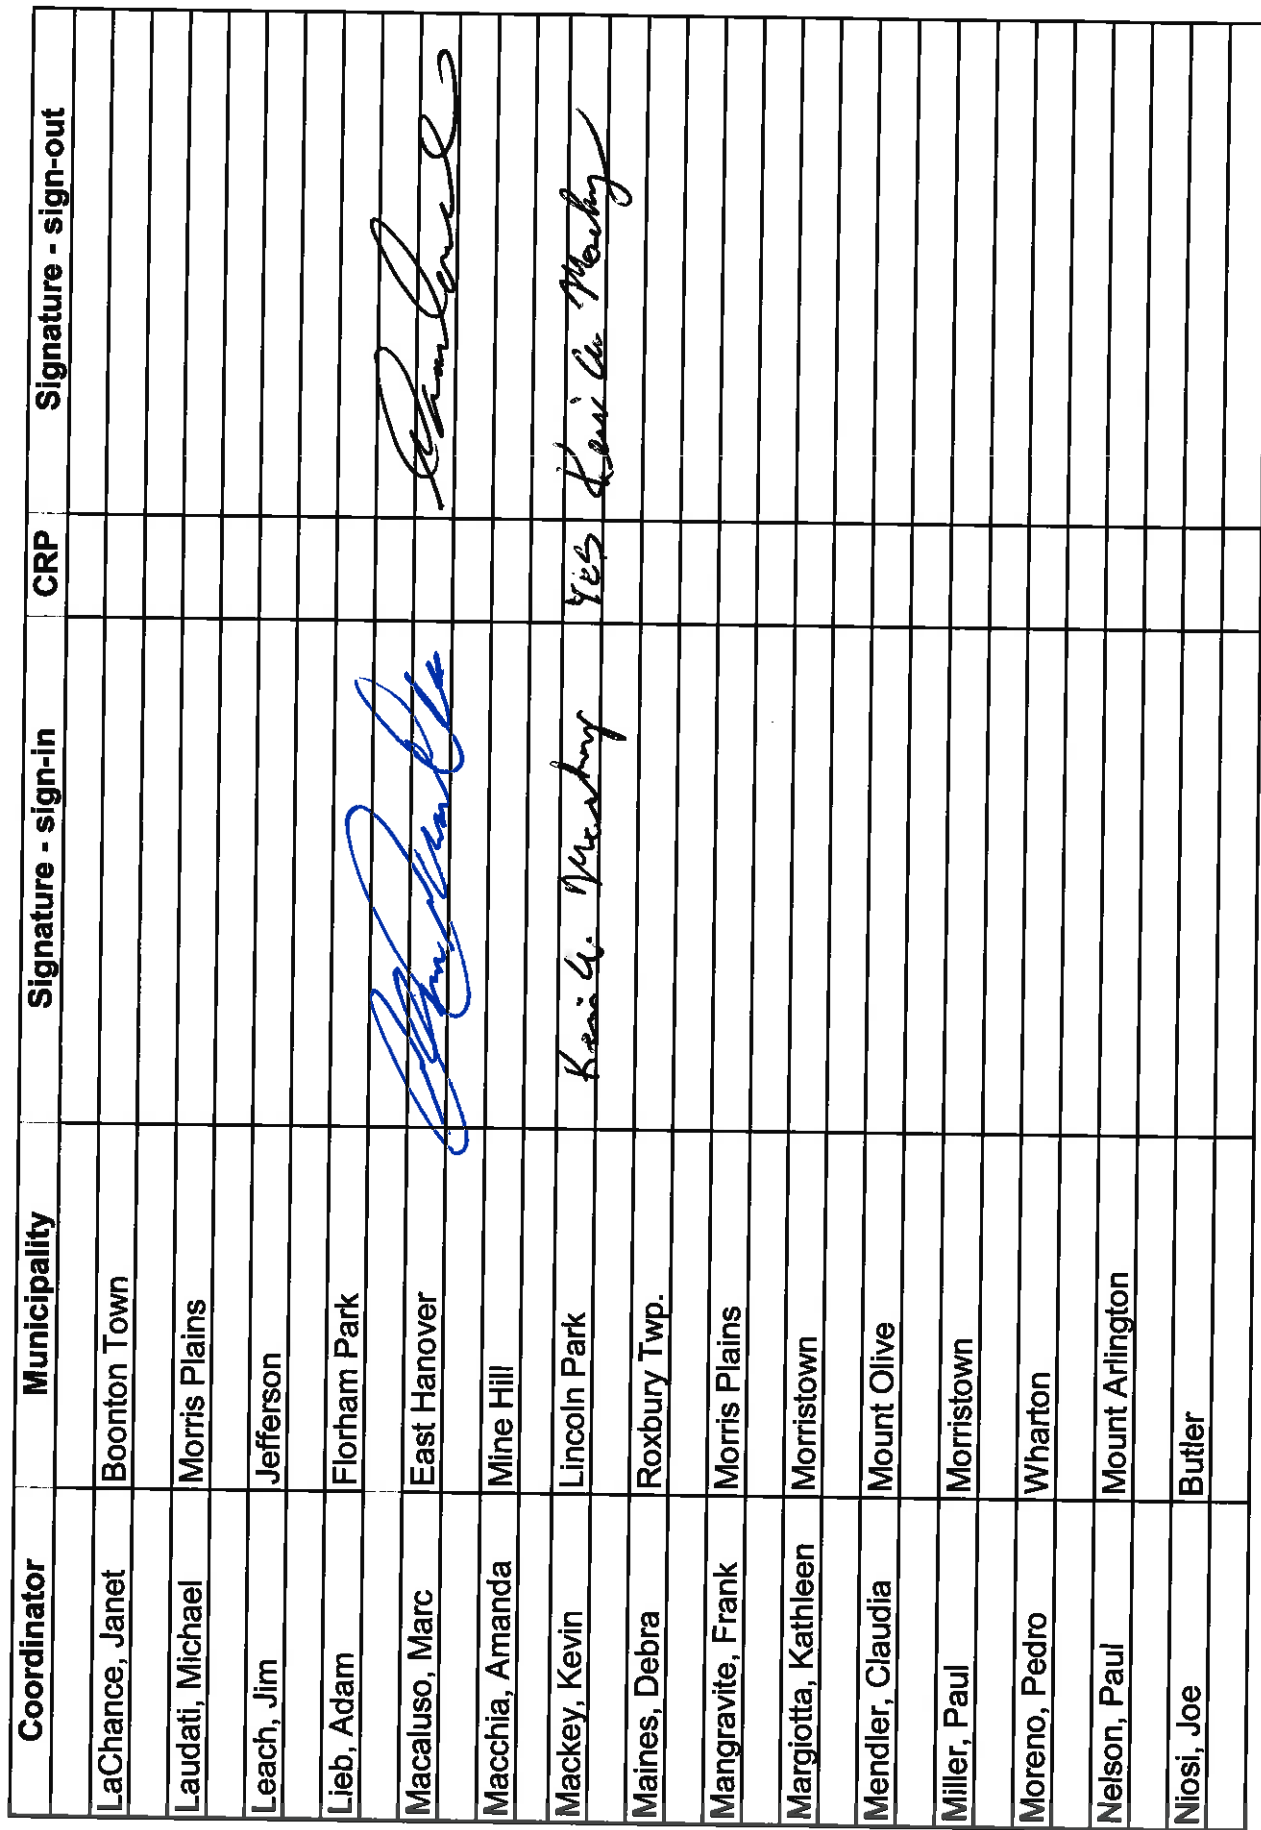 Coordinator Municipality Signature - sign-in CRP Signature - sign-out
LaChance, Janet Boonton Town
Laudati, Michael Morris Plains
Leach, Jim Jefferson
Lieb, Adam Florham Park
Macaluso, Marc East Hanover
Macchia, Amanda Mine Hill
Mackey, Kevin Lincoln Park Kevin A. Mackey Yes Kevin A. Mackey
Maines, Debra Roxbury Twp.
Mangravite, Frank Morris Plains
Margiotta, Kathleen Morristown
Mendler, Claudia Mount Olive
Miller, Paul Morristown
Moreno, Pedro Wharton
Nelson, Paul Mount Arlington
Niosi, Joe Butler